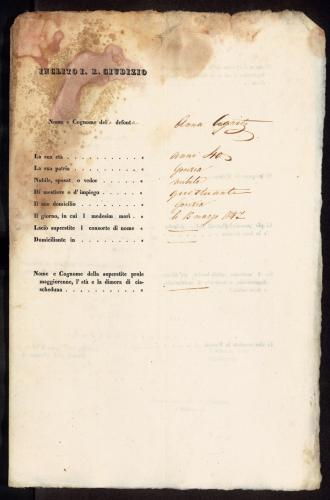 INCLITO I. R. GIUDIZIO
Nome e Cognome del defont Anna
La sua età anni 40
La sua patria Gorizia
Nubile, sposat o vedov nubile
Di mestiere o d'impiego questuante
Il suo domicilio Gorizia
Il giorno, in cui l medesim morì li marzo
Lasciò superstite l consorte di nome
Domiciliante in
Nome e Cognome della superstite prole
maggiorenne, l'età e la dimora di cia-
scheduna